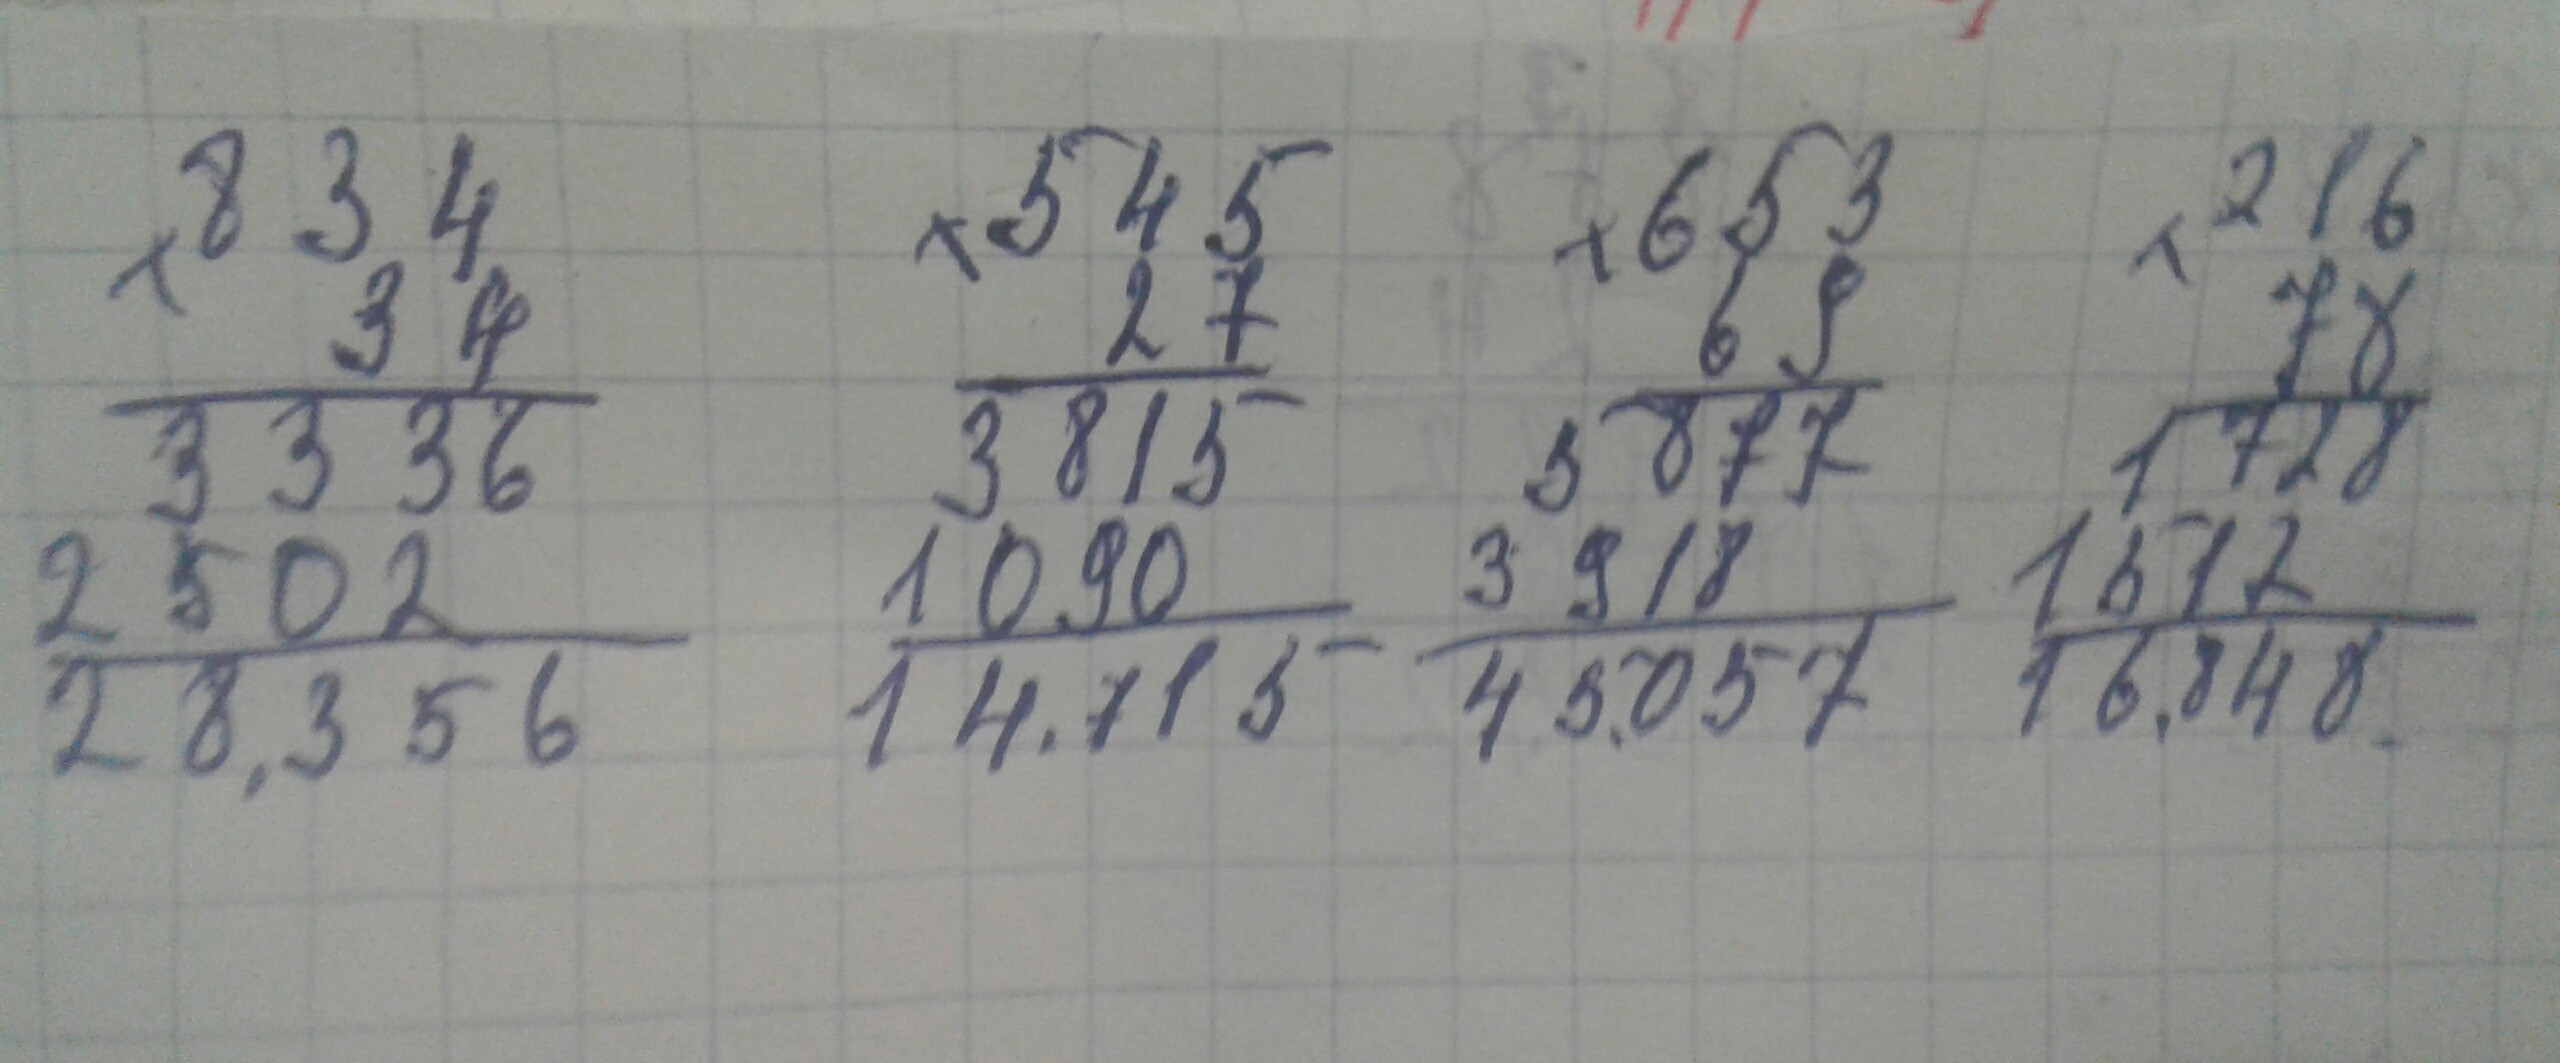 834
× 34
3336
2502
28.356
×545
27
3815
1090
14.715
×653
69
5877
3918
45.057
×216
78
1728
1512
16.848.